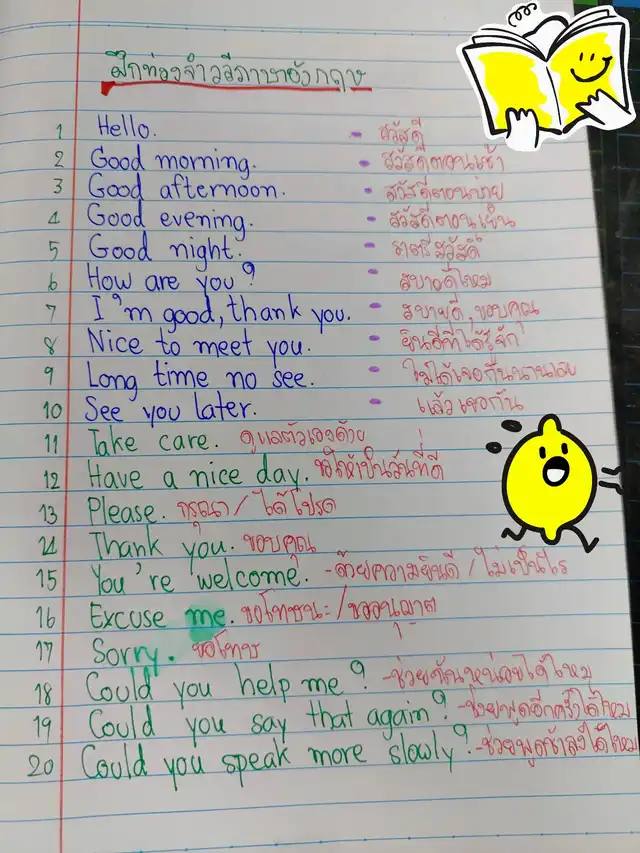 ฝึกท่องจำวลีภาษาอังกฤษ
1 Hello. - สวัสดี
2 Good morning. - สวัสดีตอนเช้า
3 Good afternoon. - สวัสดีตอนบ่าย
4 Good evening. - สวัสดีตอนเย็น
5 Good night. - ราตรีสวัสดิ์
6 How are you? - สบายดีไหม
7 I'm good, thank you. - สบายดี, ขอบคุณ
8 Nice to meet you. - ยินดีที่ได้รู้จัก
9 Long time no see. - ไม่ได้เจอกันนานเลย
10 See you later. - แล้วเจอกัน
11 Take care. ดูแลตัวเองด้วย
12 Have a nice day. ขอให้เป็นวันที่ดี
13 Please. กรุณา / ได้โปรด
14 Thank you. ขอบคุณ
15 You're welcome. - ด้วยความยินดี / ไม่เป็นไร
16 Excuse me. ขอโทษนะ / ขออนุญาต
17 Sorry. ขอโทษ
18 Could you help me? - ช่วยฉันหน่อยได้ไหม
19 Could you say that again? - ช่วยพูดอีกครั้งได้ไหม
20 Could you speak more slowly? - ช่วยพูดช้าลงได้ไหม